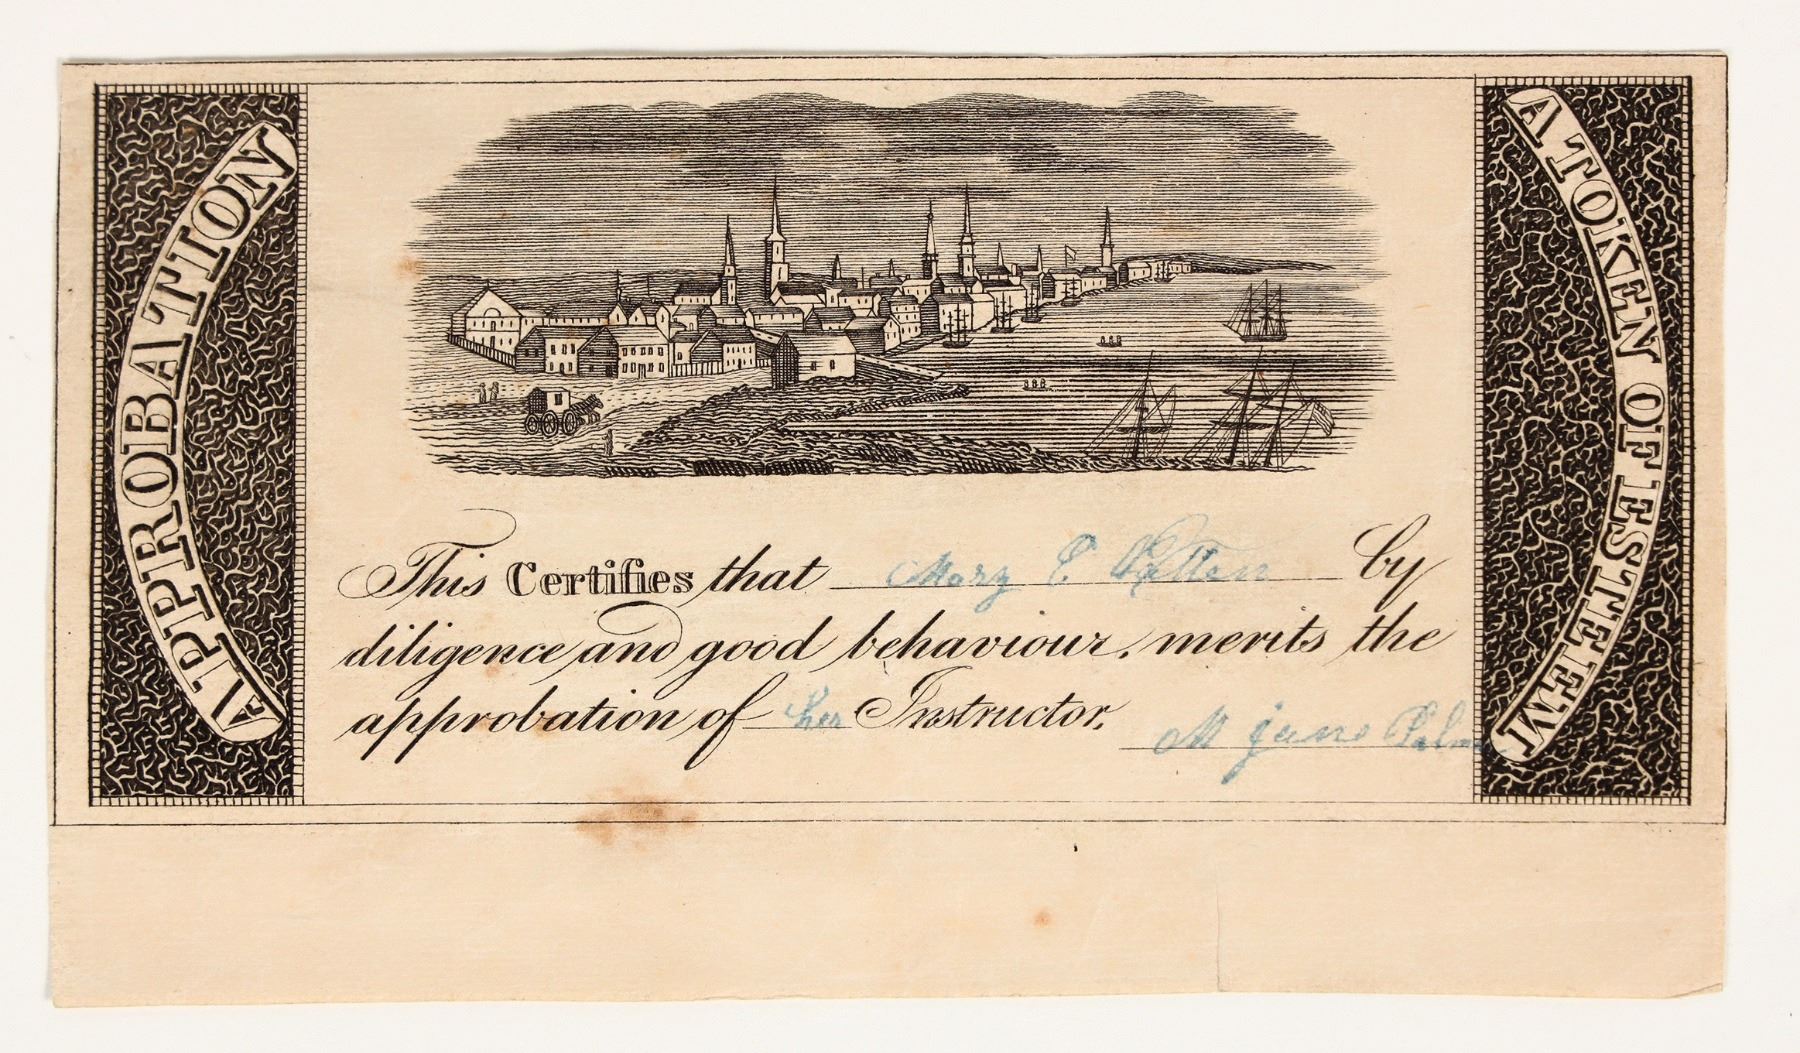 APPROBATION
A TOKEN OF ESTEEM
This Certifies that Mary E Patten by
diligence and good behaviour, merits the
approbation of her Instructor.
M Jane